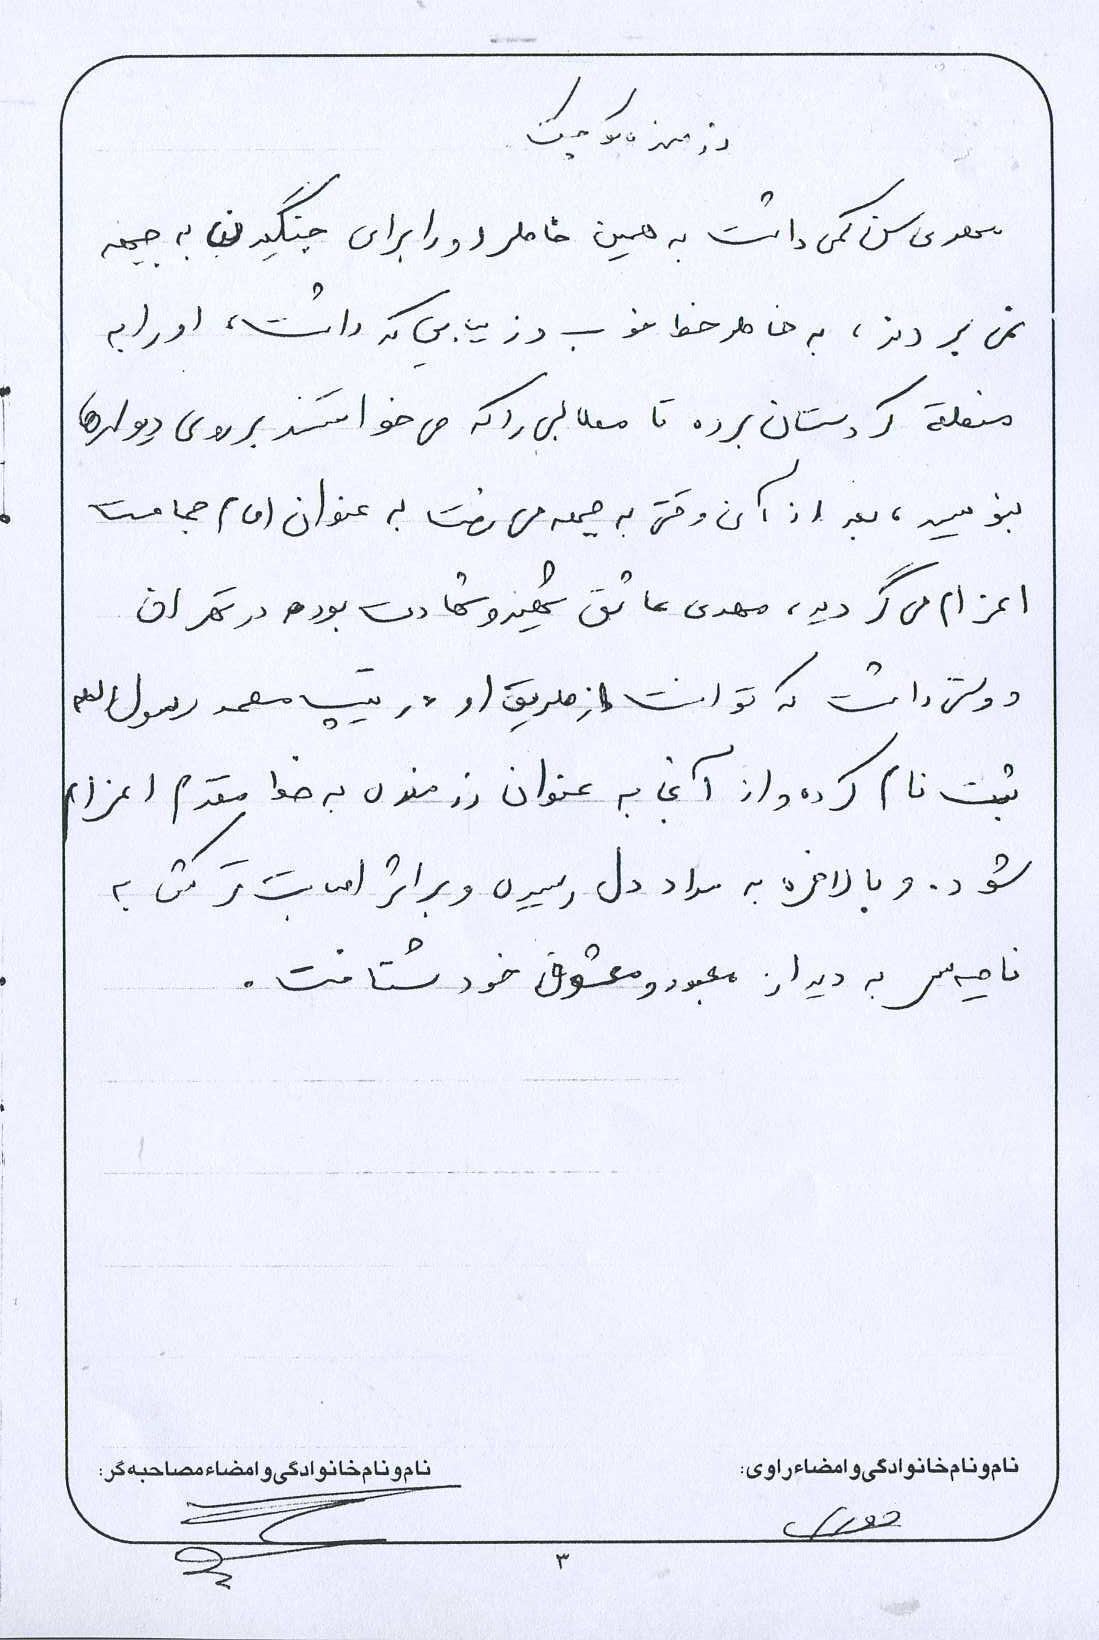 رزمنده کوچک
مهدی سن کمی داشت به همین خاطر او را برای جنگیدن به جبهه
نمی بردند، به خاطر خط خوب و زیبایی که داشت، او را به
منطقه کردستان برده تا مطالبی را که می خواستند بر روی دیوارها
بنویسد، بعد از آن وقتی به جبهه می رفت به عنوان امام جماعت
اعزام می گردید، مهدی عاشق شهید و شهادت بود و در تهران
دوستی داشت که توانست از طریق او در تیپ محمد رسول الله
ثبت نام کرده و از آنجا به عنوان رزمنده به خط مقدم اعزام
شود. و بالاخره به مراد دل رسیده و بر اثر اصابت ترکش به
ناحیه سر به دیدار معبود و معشوق خود شتافت.
نام و نام خانوادگی و امضاء راوی:
نام و نام خانوادگی و امضاء مصاحبه گر:
۳